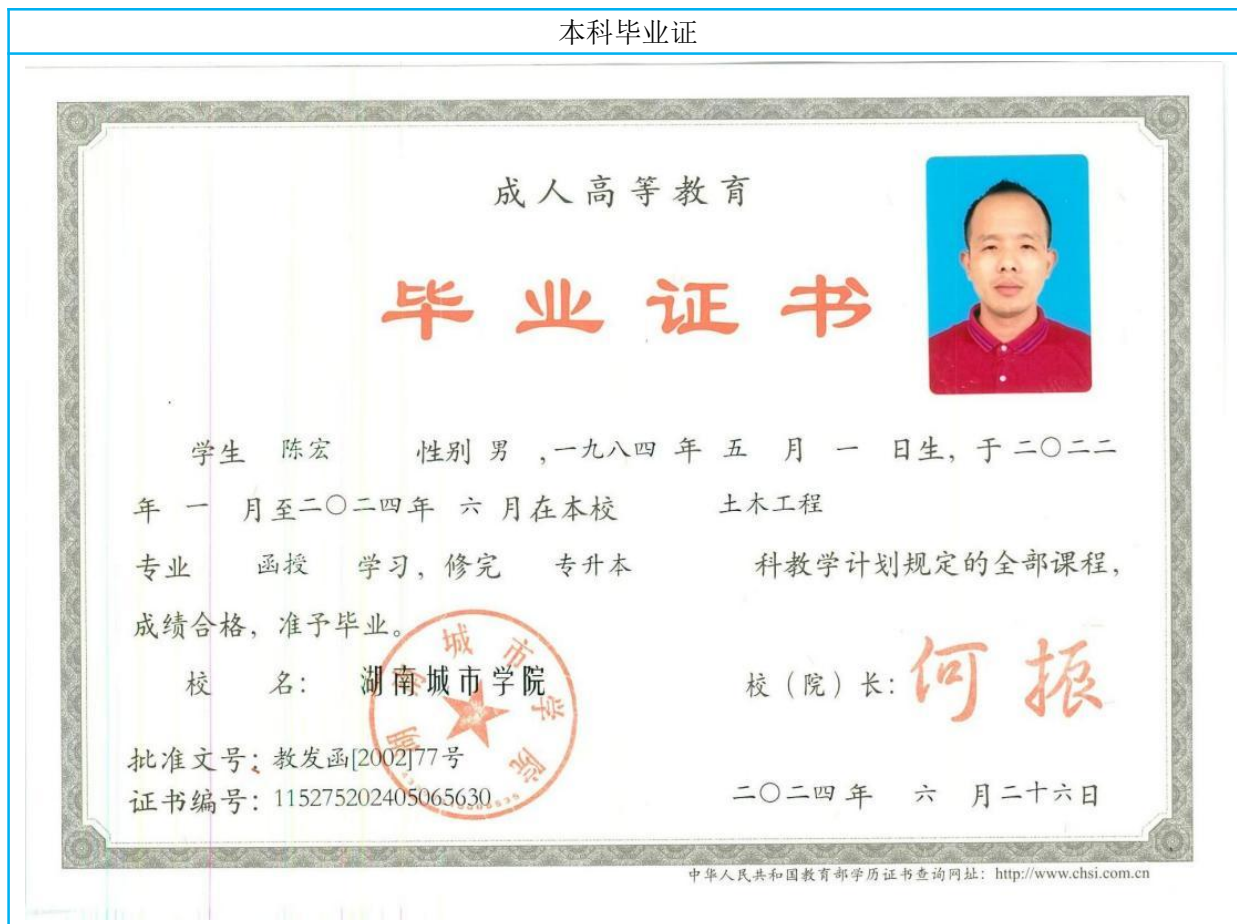 本科毕业证
成人高等教育
毕业证书
学生 陈宏 性别 男 ,一九八四 年 五 月 一 日生, 于 二〇二二
年 一 月至二〇二四年 六 月在本校 土木工程
专业 函授 学习, 修完 专升本 科教学计划规定的全部课程,
成绩合格, 准予毕业。
校 名: 湖南城市学院 校(院)长: 何振
湖南城市学院
批准文号: 教发函[2002]77号
证书编号: 115275202405065630 二〇二四 年 六 月二十六日
中华人民共和国教育部学历证书查询网址: http://www.chsi.com.cn